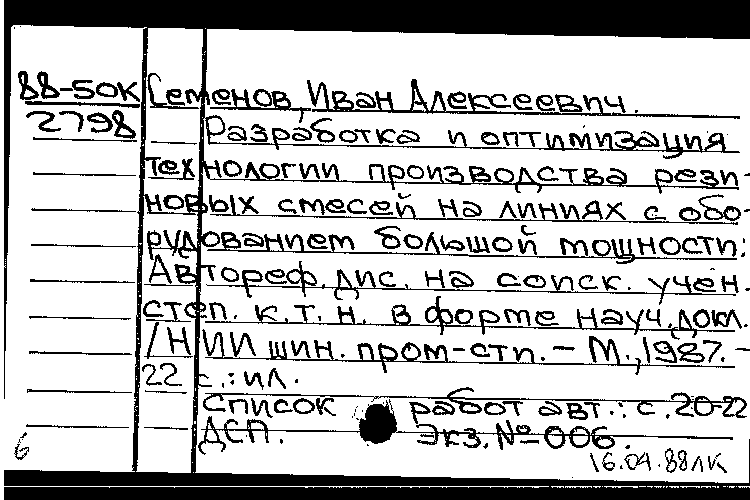 88-50К Семенов, Иван Алексеевич.
2798 Разработка и оптимизация
технологии производства рези-
новых смесей на линиях с обо-
рудованием большой мощности:
Автореф. дис. на соиск. учен.
степ. к.т.н. в форме науч. докл.
/НИИ шин. пром-сти. – М., 1987. –
22 с.: ил.
Список работ авт.: с. 20-22
ДСП. Экз. № 006.
6 16.04.88 лк